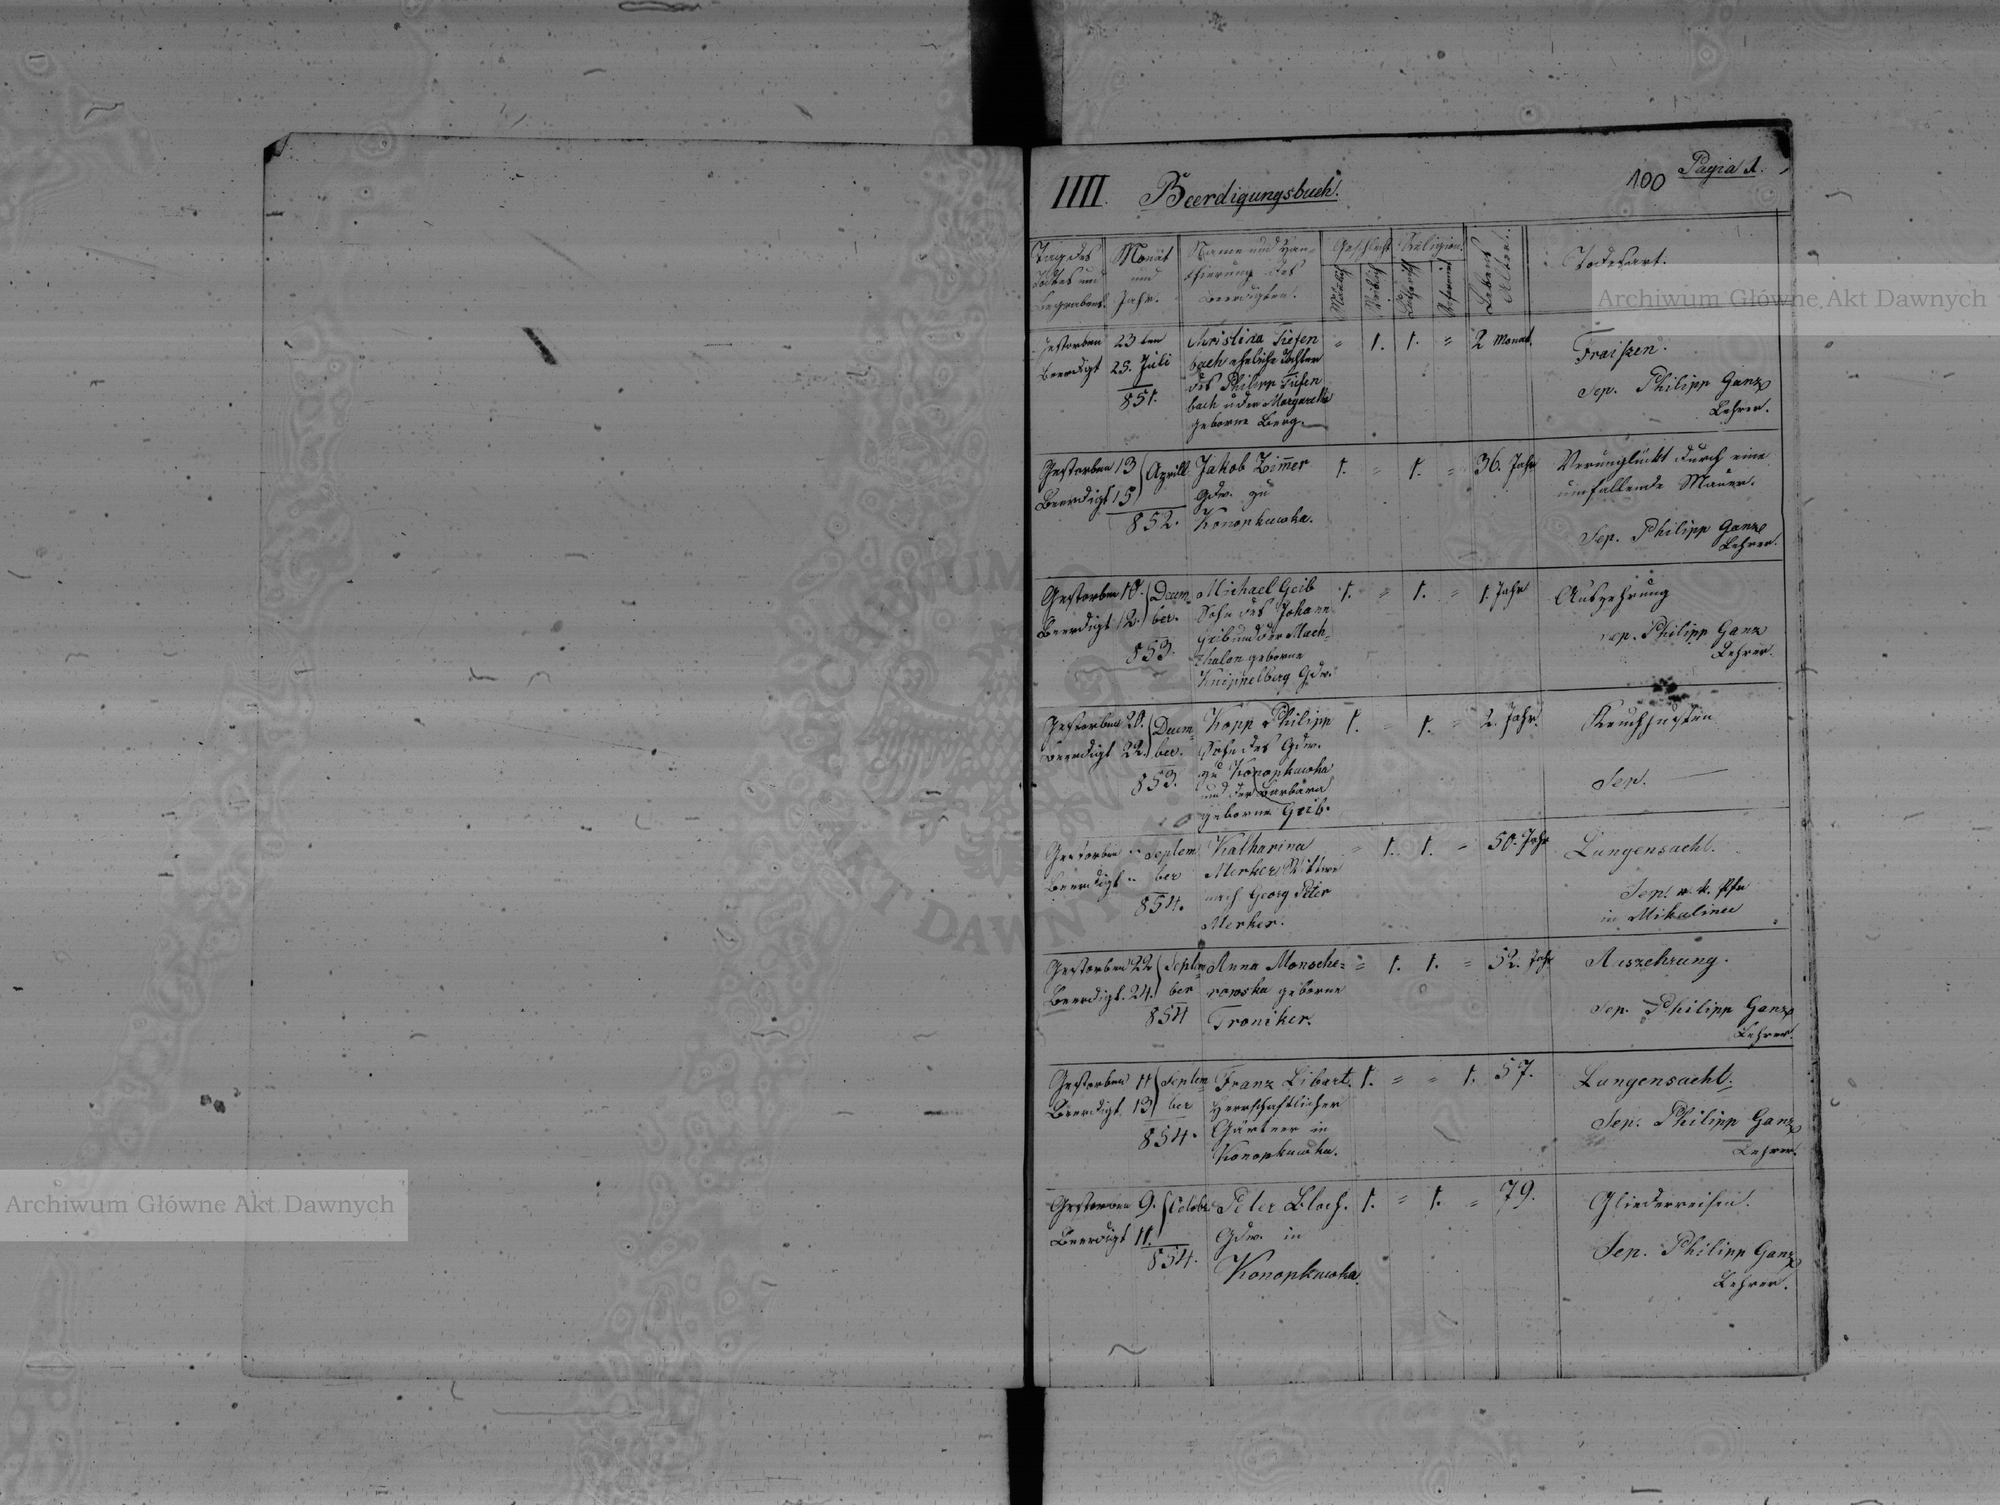 IIII. Beerdigungsbuch. 100 Pagia 1.
Tag des
Todes und
Begrabens.
Monat
und
Jahr.
Name und
des
Beerdigten.
Geschlecht
Mänlich
Weiblich
Religion.
Lutherisch
Reformirt
Lebens
Alter.
Todesart.
Gestorben 23ten
Beerdigt 25. Juli
851.
Christina Tiefen
bach eheliche Tochter
des Philipp Tiefen
bach u der Margaretha
geborne Berg.
= 1. 1. = 2 Monat.
Fraisen.
Sep. Philipp Ganz
Lehrer.
Gestorben 13
Beerdigt 15
Aprill
852.
Jakob Zim̅er
Gdw. zu
Konopkuwka.
1. = 1. = 36. Jahr
Verunglückt durch eine
umfallende Mauer.
Sep. Philipp Ganz
Lehrer.
Gestorben 10.
Beerdigt 12.
Decem-
ber.
853.
Michael Geib
Sohn des Johann
Geib und der Mach-
thalen geborne
Knippelberg Gdw.
1. = 1. = 1. Jahr
Auszehrung
Sep. Philipp Ganz
Lehrer.
Gestorben 20.
Beerdigt 22.
Decem-
ber.
853.
Kopp Philipp
Sohn des Gdw.
zu Konopkuwka
und der Barbara
geborne Geib.
1. = 1. = 2. Jahr.
Keuchhusten
Sep. —
Gestorben "
Beerdigt "
Septem
ber
854.
Katharina
Merker Wittwe
nach Georg Peter
Merker.
= 1. 1. = 50. Jahr
Lungensucht.
Sep.
in Mikulince
Gestorben 22
Beerdigt. 24.
Septem
ber
854
Anna Monsche=
rowska geborne
Troniker.
= 1. 1. = 52. Jahr
Auszehrung.
Sep. Philipp Ganz
Lehrer.
Gestorben 11
Beerdigt 13
Septem
ber
854.
Franz Libart.
Herrschaftlicher
Gärtner in
Konopkuwka.
1. = = 1. 57.
Lungensucht.
Sep. Philipp Ganz
Lehrer.
Gestorben 9.
Beerdigt 11.
Octobr
854.
Peter Bloch.
Gdw. in
Konopkuwka.
1. = 1. = 79.
Gliederreisen.
Sep. Philipp Ganz
Lehrer.
Archiwum Główne Akt Dawnych
Archiwum Główne Akt Dawnych